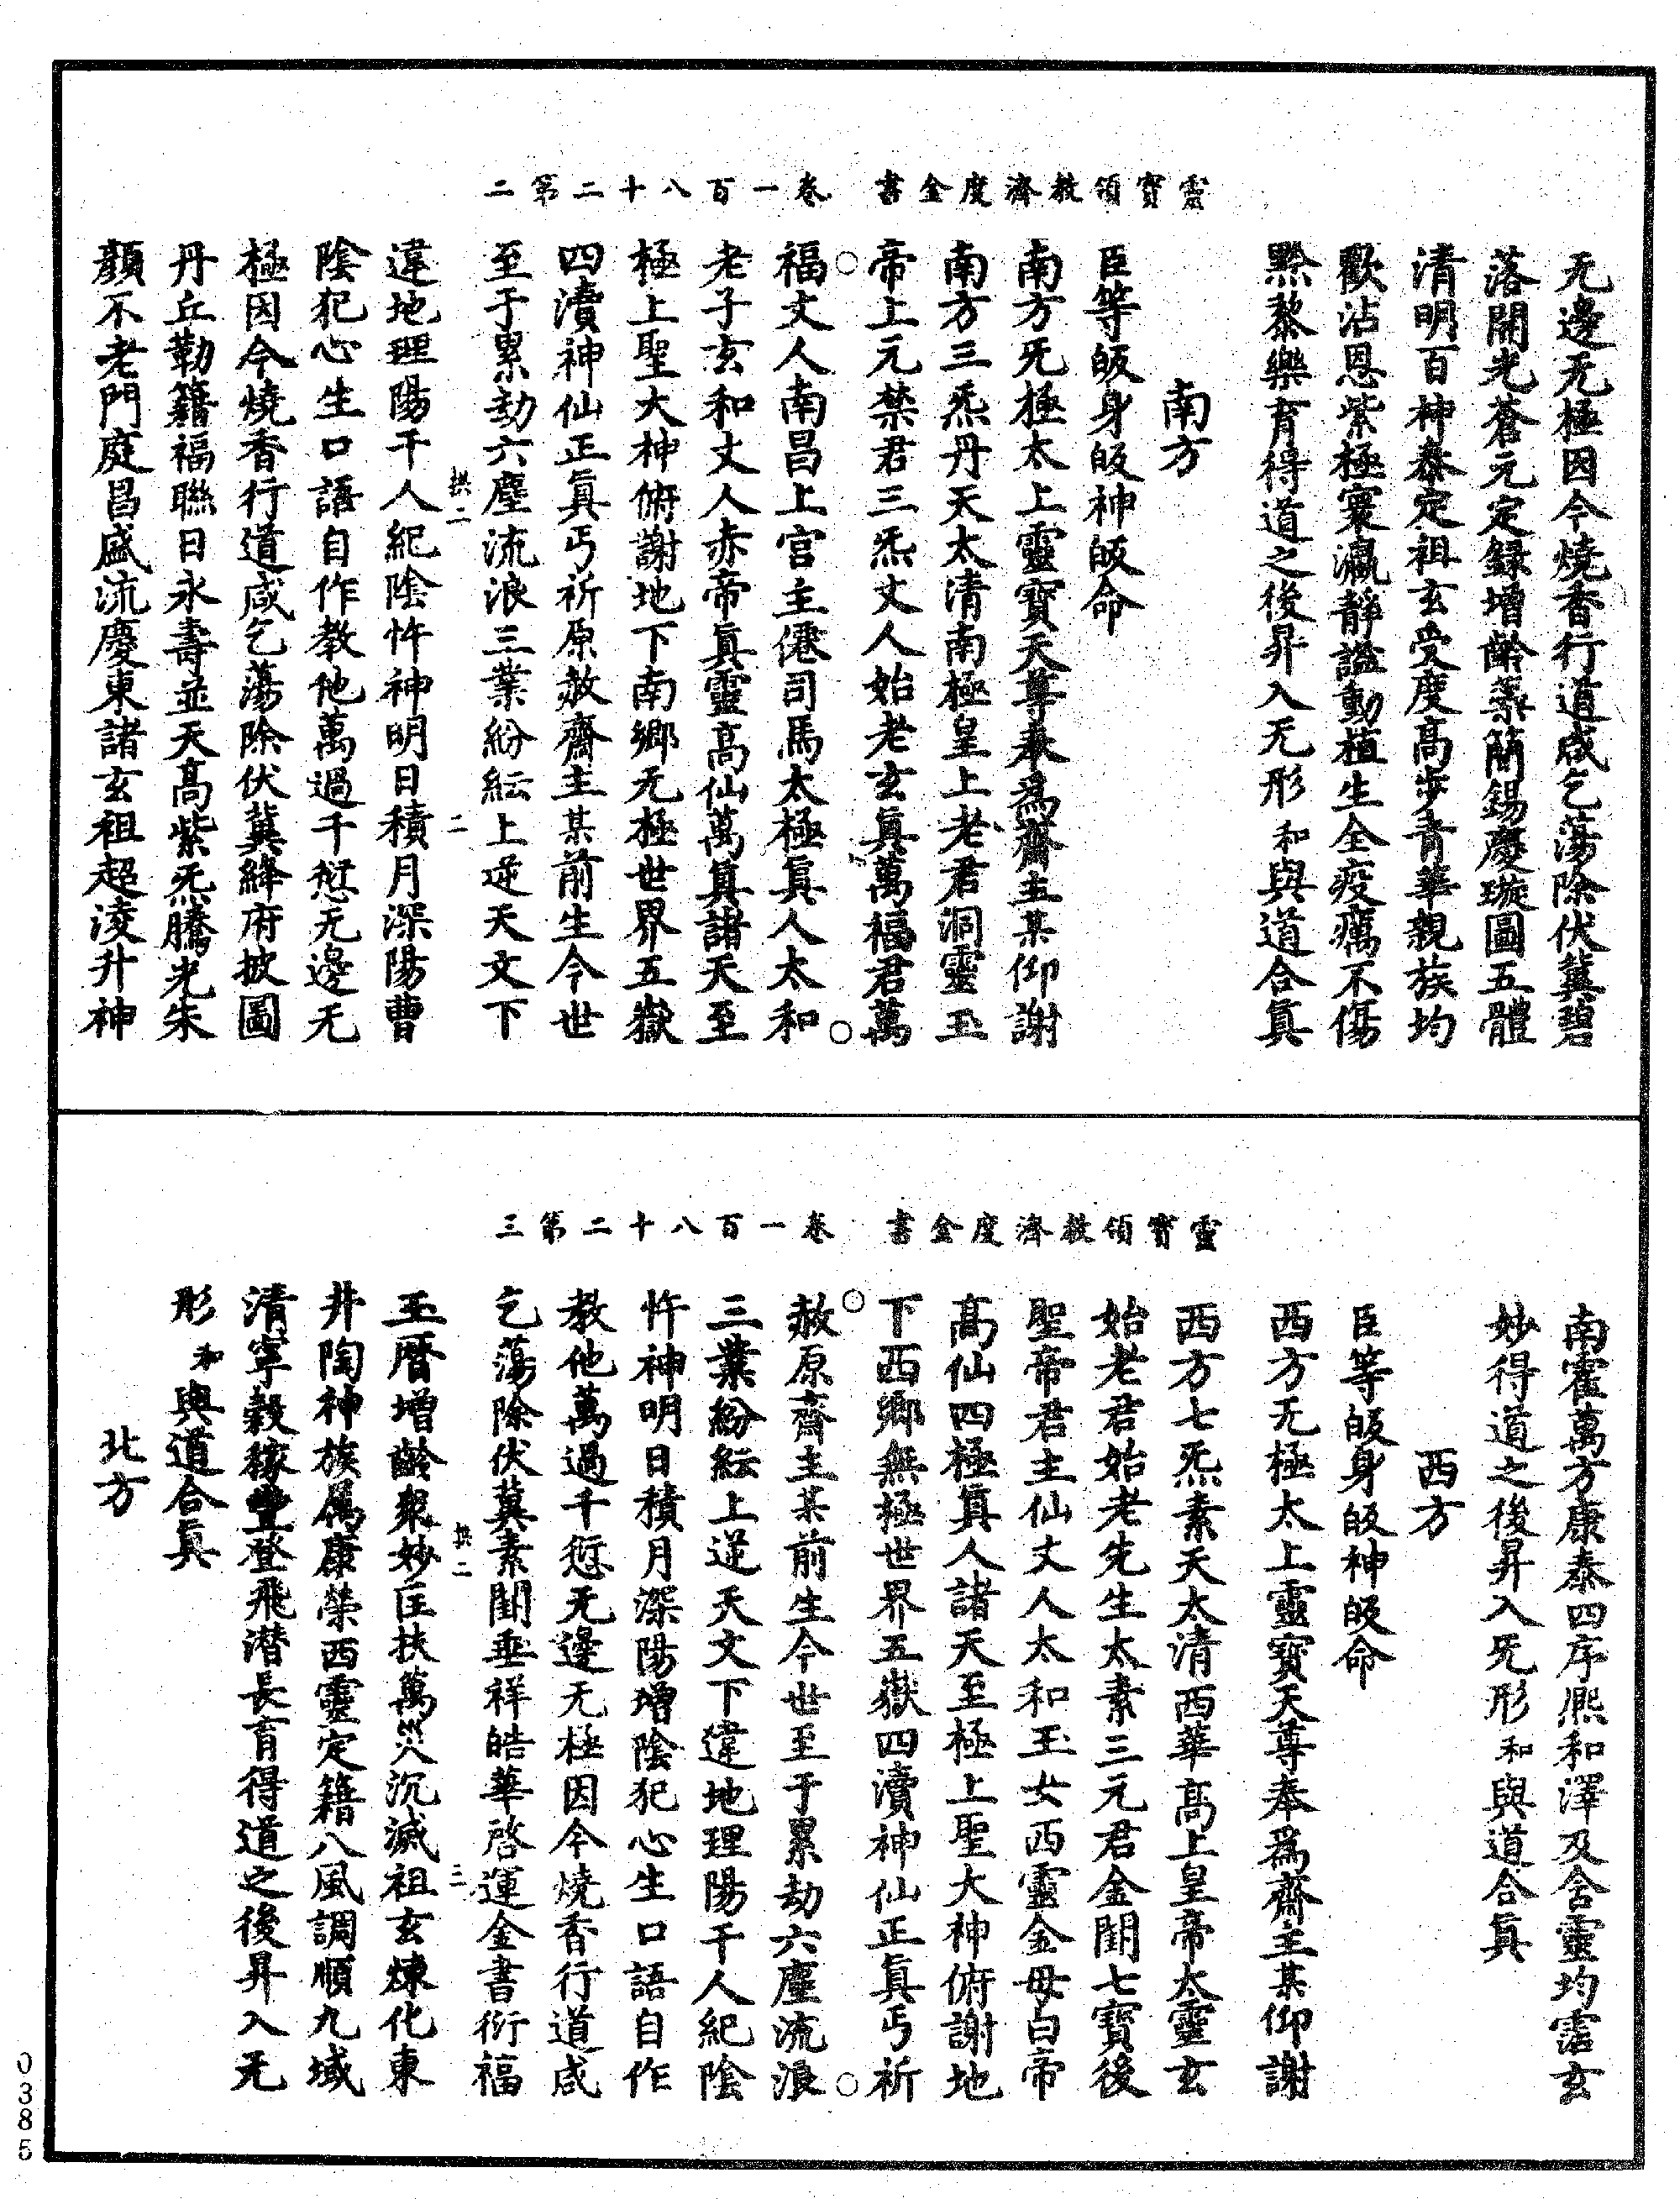 靈寶領教濟度金書　卷一百八十二第二
无邊无極因今燒香行道咸乞蕩除伏冀碧
落開光蒼元定録增齡蘂簡錫慶璇圖五體
清明百神泰定祖玄受度高步青華親族均
歡沾恩紫極寰瀛靜謐動植生全疫癘不傷
黔黎樂育得道之後昇入无形和與道合眞
南方
臣等皈身皈神皈命
南方旡極太上靈寶天尊奉爲齋主某仰謝
南方三炁丹天太清南極皇上老君洞靈玉
帝上元禁君三炁丈人始老玄眞萬福君萬
福丈人南昌上宫主僊司馬太極眞人太和
老子玄和丈人赤帝眞靈高仙萬眞諸天至
極上聖大神俯謝地下南鄉无極世界五嶽
四瀆神仙正眞丐祈原赦齋主某前生今世
至于累劫六塵流浪三業紛紜上逆天文下
違地理陽干人紀陰忤神明日積月深陽曹
陰犯心生口語自作教他萬過千愆无邊无
極因今燒香行道咸乞蕩除伏冀絳府披圖
丹丘勒籍福聯日永壽並天高紫炁騰光朱
顏不老門庭昌盛流慶東諸玄祖超淩升神
拱二
二
靈寶領教濟度金書　卷一百八十二第三
南霍萬方康泰四序熈和澤及含靈均霑玄
妙得道之後昇入旡形和與道合眞
西方
臣等皈身皈神皈命
西方无極太上靈寶天尊奉爲齋主某仰謝
西方七炁素天太清西華高上皇帝太靈玄
始老君始老先生太素三元君金闕七寶後
聖帝君主仙丈人太和玉女西靈金母白帝
高仙四極眞人諸天至極上聖大神俯謝地
下西鄉無極世界五嶽四瀆神仙正眞丐祈
赦原齋主某前生今世至于累劫六塵流浪
三業紛紜上逆天文下違地理陽干人紀陰
忤神明日積月深陽增陰犯心生口語自作
教他萬過千愆无邊无極因今燒香行道咸
乞蕩除伏冀素闕垂祥皓華啓運金書衍福
玉曆增齡衆妙匡扶萬災沉滅祖玄煉化東
井陶神族属康榮西靈定籍八風調順九域
清寧穀稼豊登飛潛長育得道之後昇入无
形和與道合眞
北方
拱二
三
0385